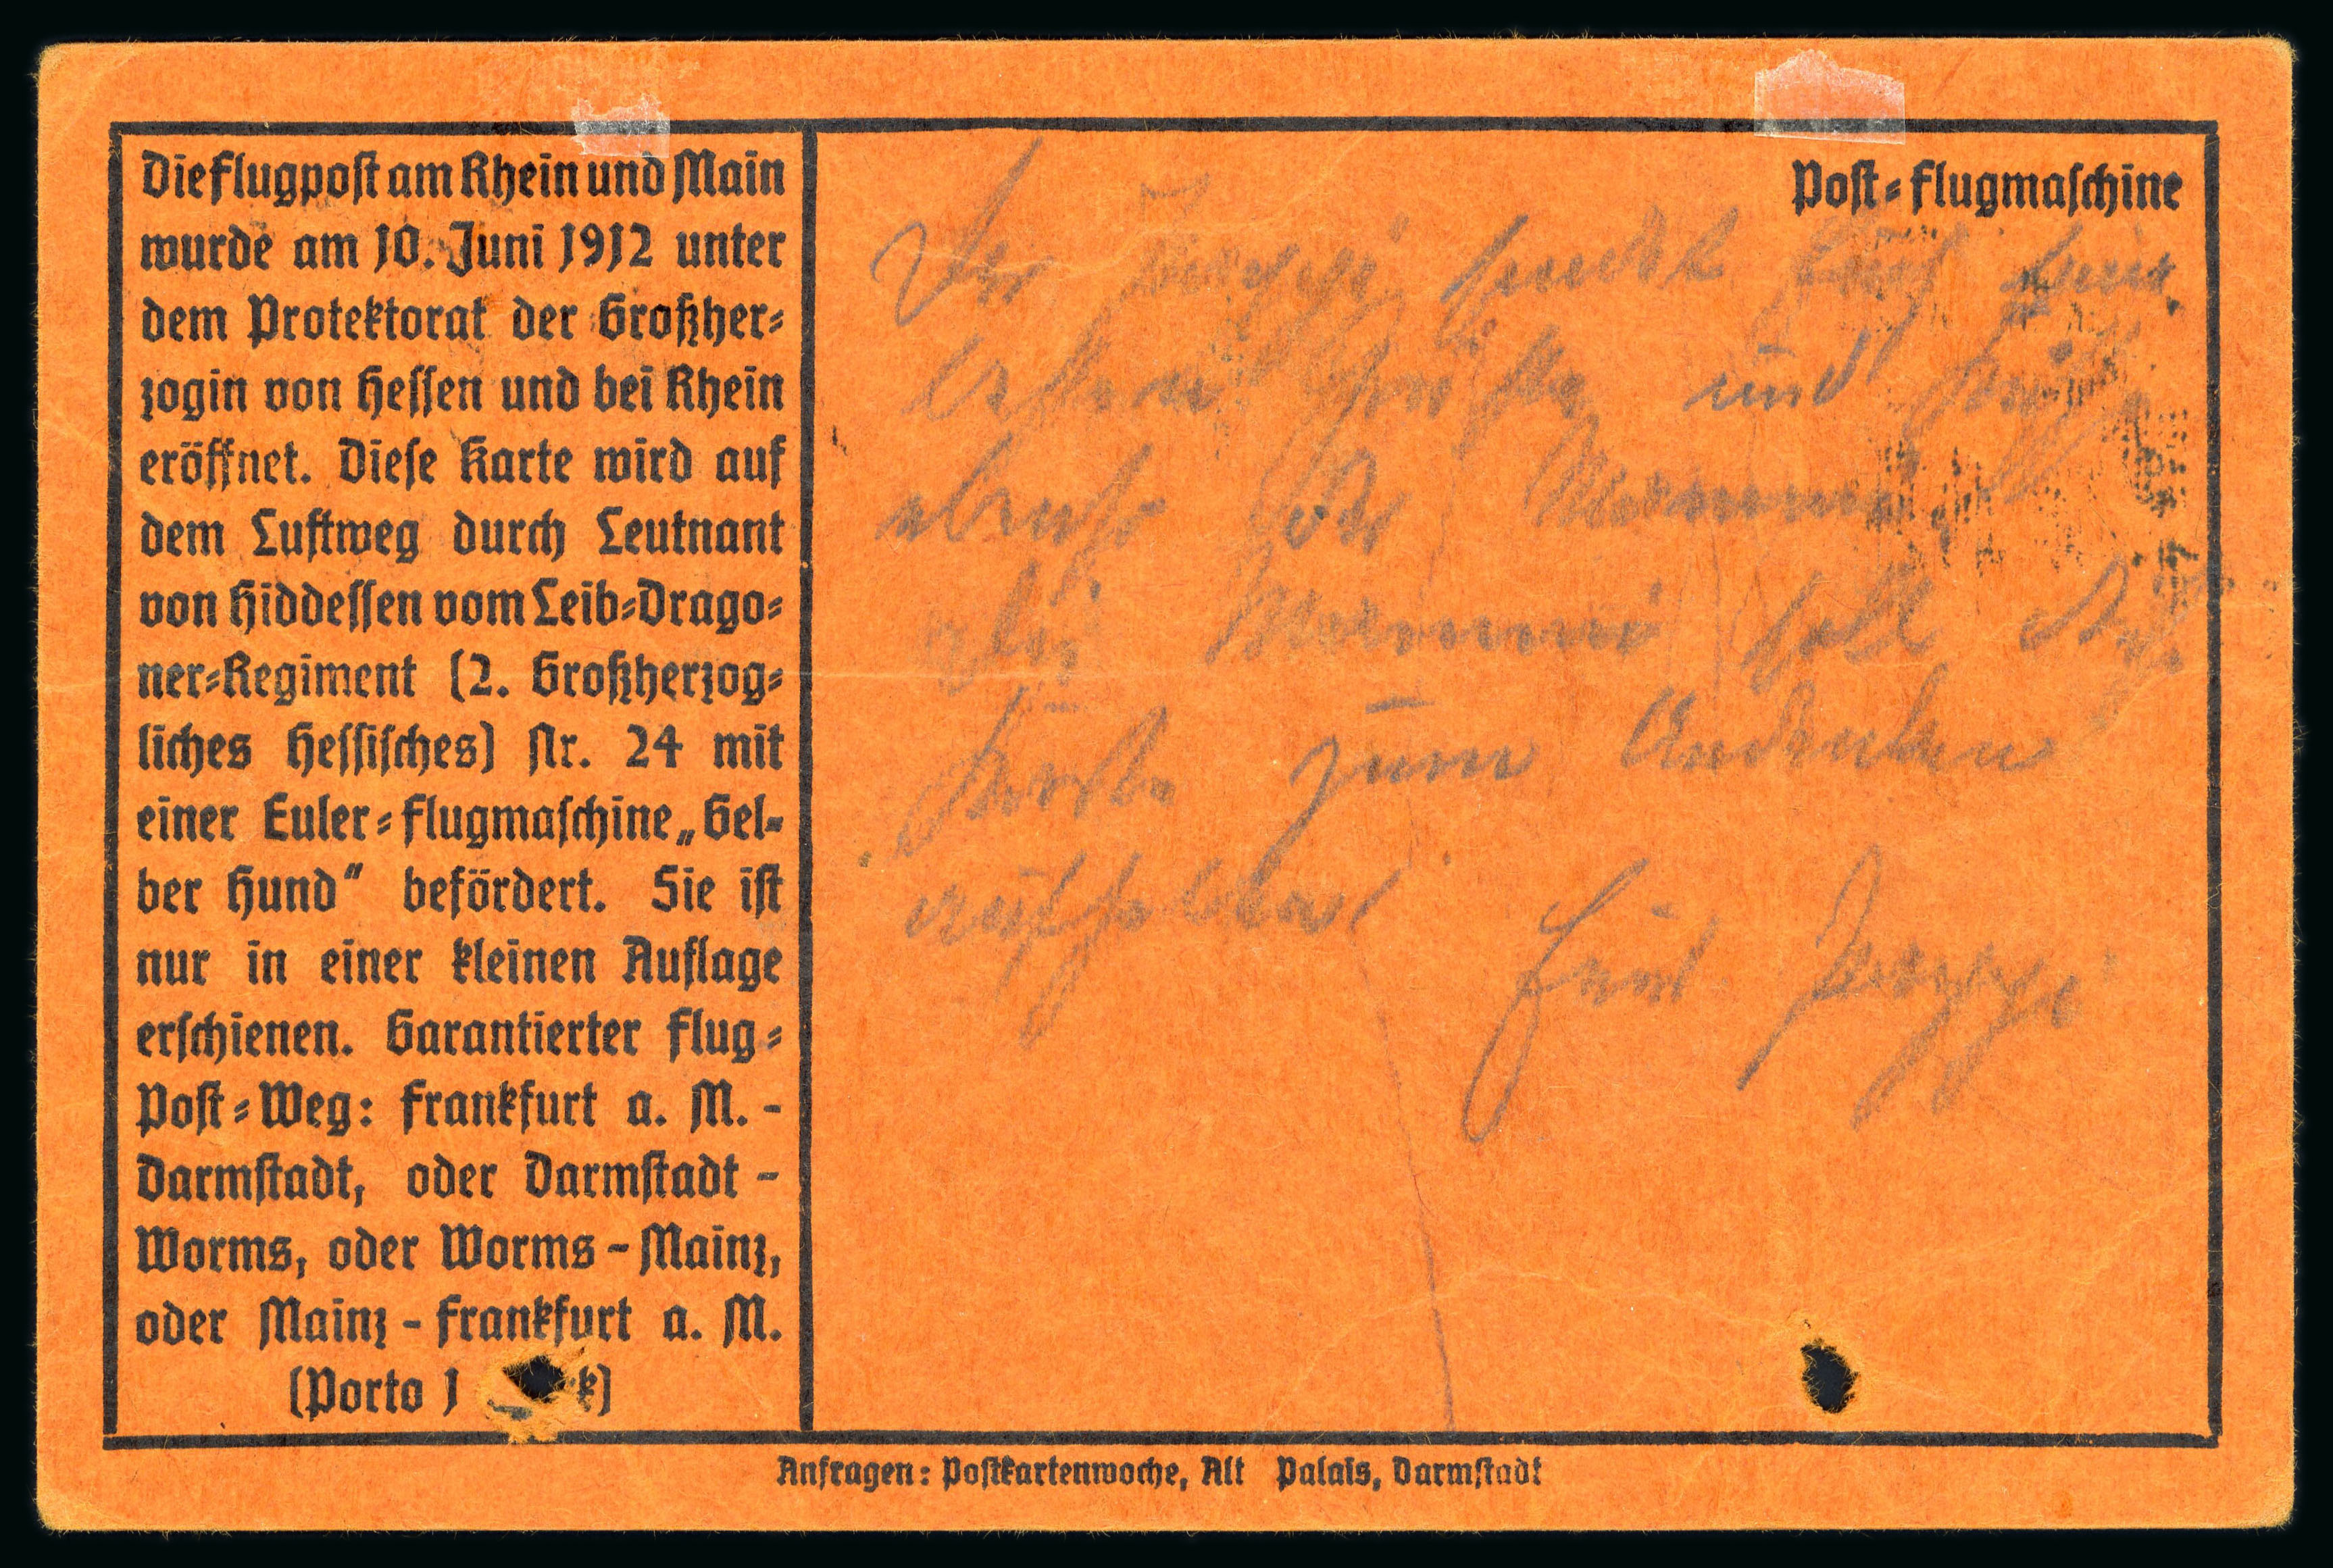 Die Flugpost am Rhein und Main
wurde am 10. Juni 1912 unter
dem Protektorat der Großher-
zogin von Hessen und bei Rhein
eröffnet. Diese Karte wird auf
dem Luftweg durch Leutnant
von Hiddessen vom Leib-Drago-
ner-Regiment (2. Großherzog-
liches Hessisches) Nr. 24 mit
einer Euler-Flugmaschine „Gel-
ber Hund“ befördert. Sie ist
nur in einer kleinen Auflage
erschienen. Garantierter Flug-
Post-Weg: Frankfurt a. M. -
Darmstadt, oder Darmstadt -
Worms, oder Worms - Mainz,
oder Mainz - Frankfurt a. M.
(Porto 1
Post-Flugmaschine
Der sendet
besten und
ebenso
die Mammi soll
Karte zum Andenken
aufheben
Anfragen: Postkartenwoche, Alt Palais, Darmstadt